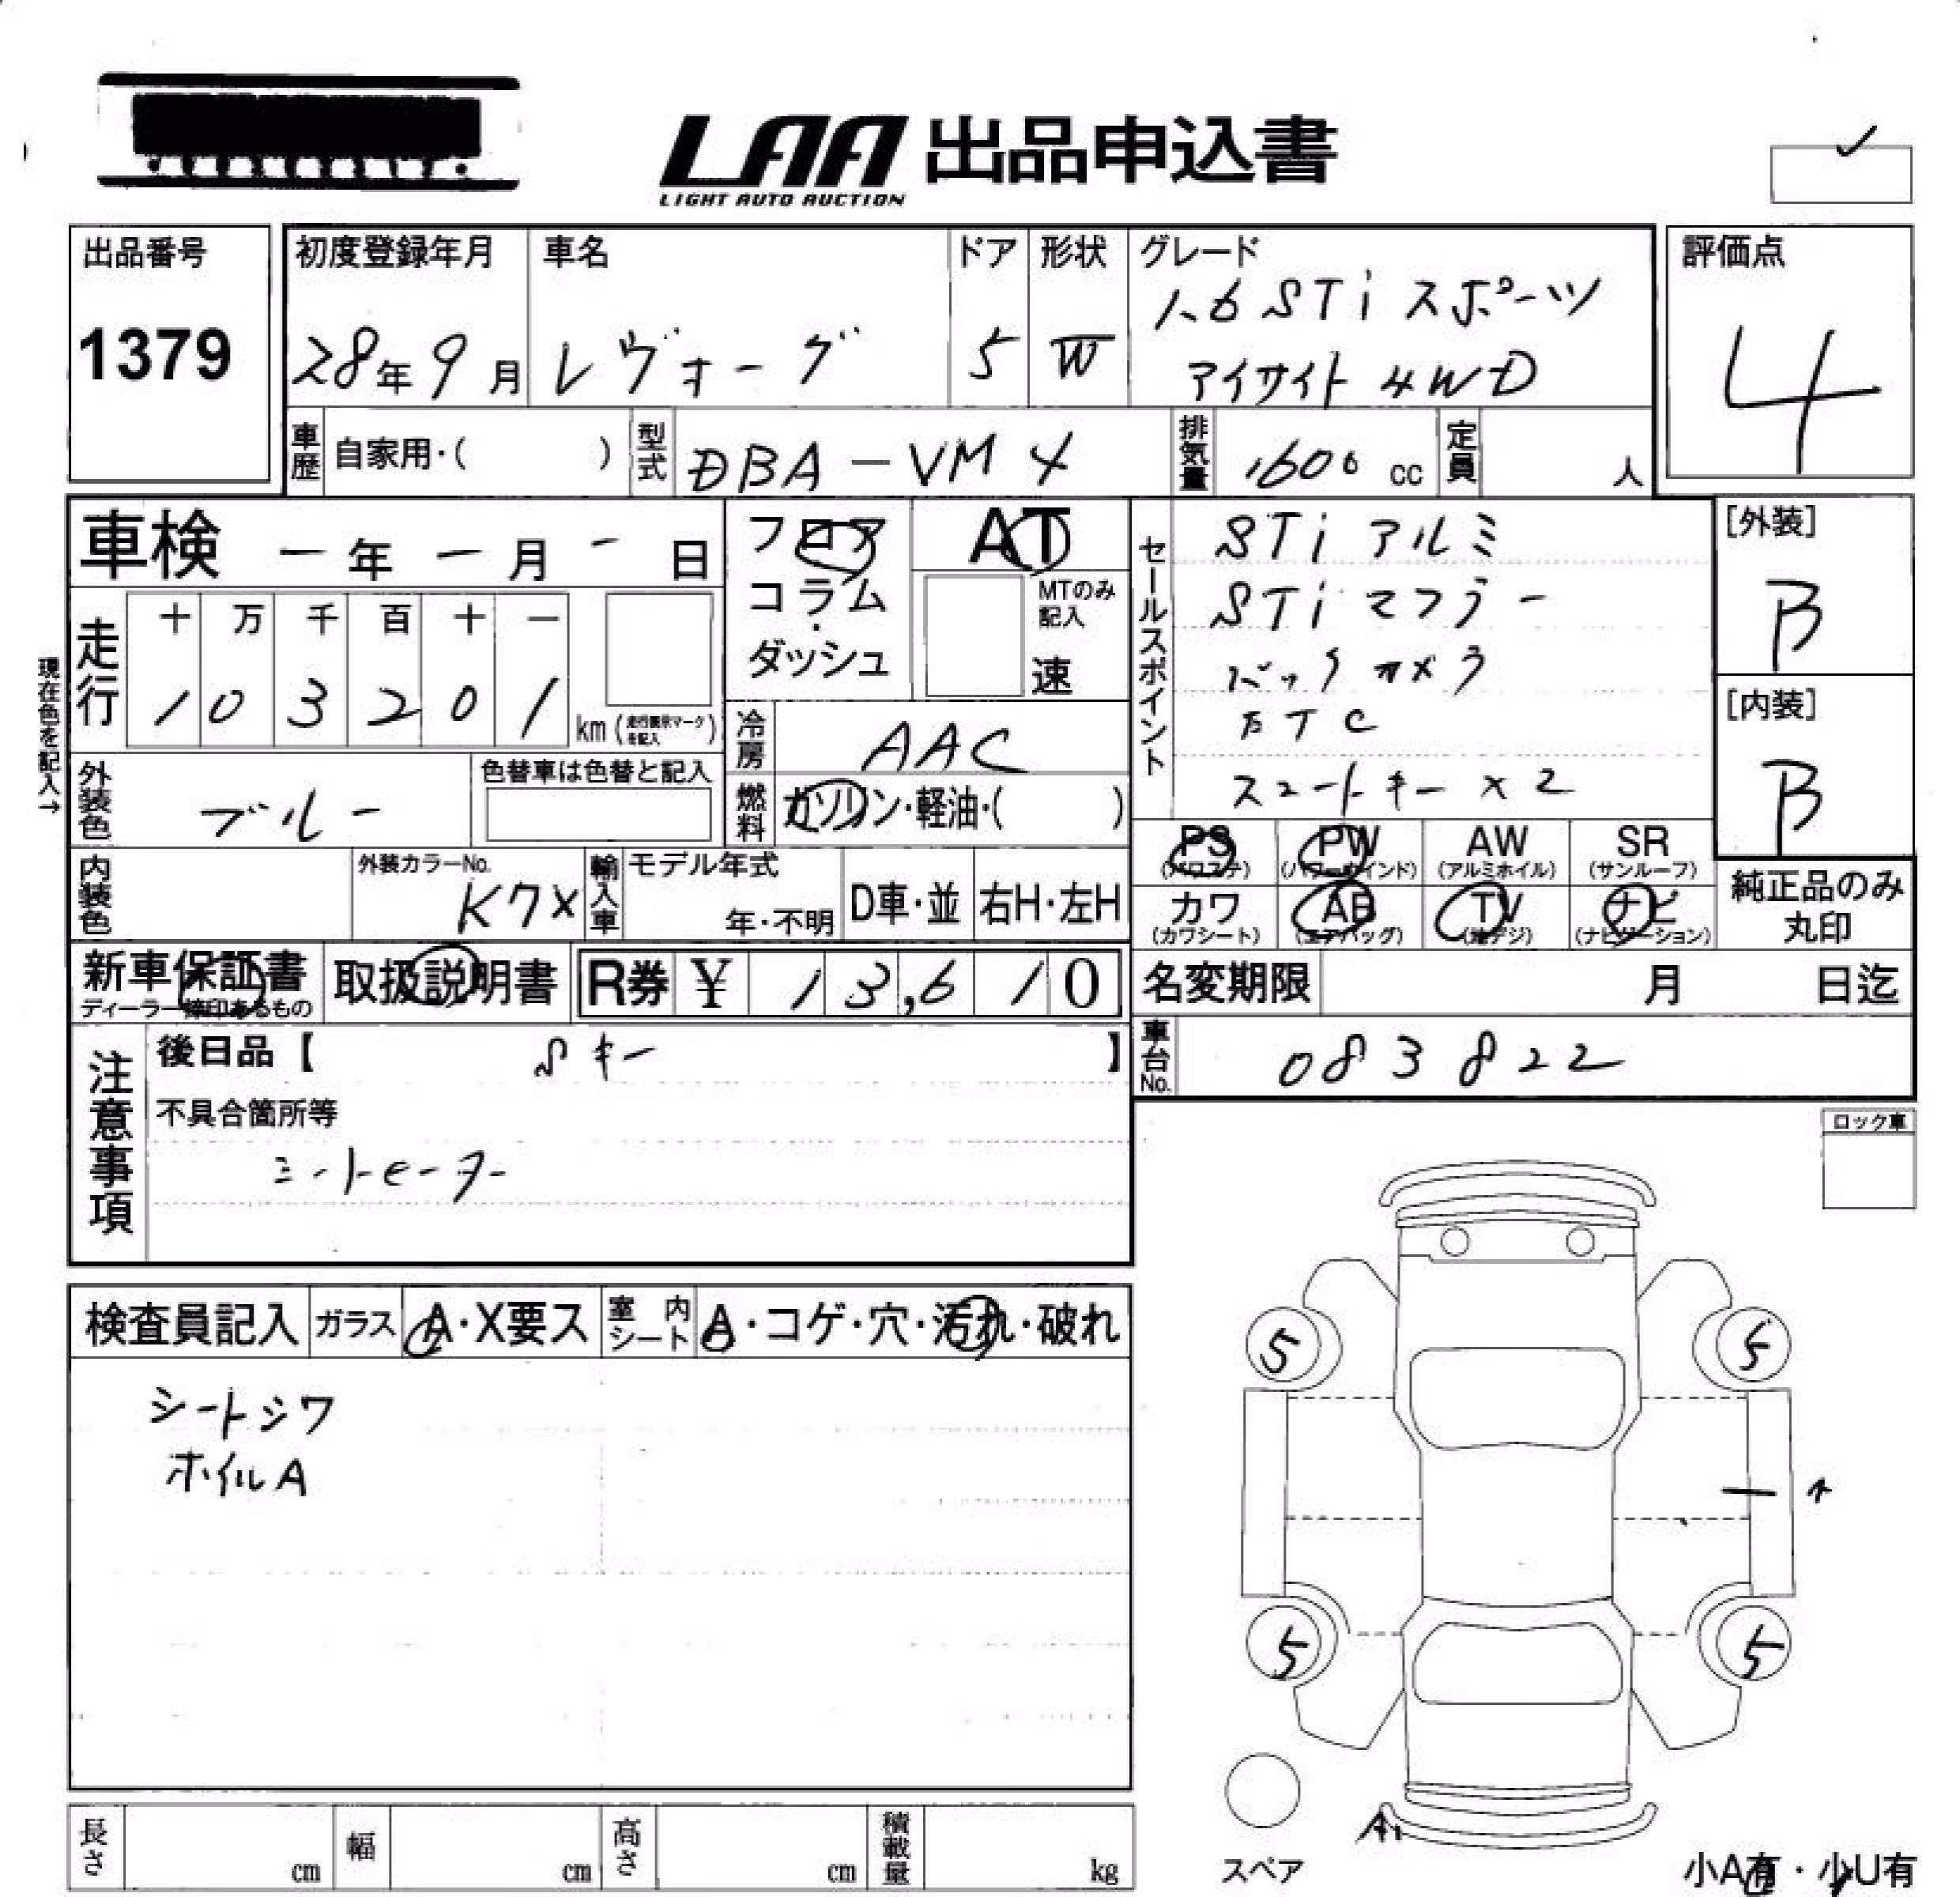 LAA 出品申込書
LIGHT AUTO AUCTION
出品番号
1379
初度登録年月
28年9月
車名
レヴォーグ
ドア
5
形状
W
グレード
1.6 STi スポーツ
アイサイト 4WD
評価点
4
車歴 自家用・( )
型式 DBA-VM4
排気量 1600 cc
定員 人
車検 ー年 ー月 ー日
フロア
コラム
・
ダッシュ
AT
MTのみ
記入
速
セールスポイント
STi アルミ
STi マフラー
バックカメラ
ETC
スマートキー×2
[外装]
B
[内装]
B
現在色を記入→
走行
十 万 千 百 十 一
1 0 3 2 0 1
km
冷房 AAC
外装色 ブルー
色替車は色替と記入
燃料 ガソリン・軽油・( )
PS (パワステ)
PW (パワーウインド)
AW (アルミホイル)
SR (サンルーフ)
カワ (カワシート)
AB (エアバッグ)
TV (地デジ)
ナビ (ナビゲーション)
純正品のみ
丸印
内装色
外装カラーNo.
K7X
輸入車
モデル年式
年・不明
D車・並
右H・左H
新車保証書
ディーラー締印あるもの
取扱説明書
R券 ¥ 13,610
名変期限 月 日迄
車台No. 083822
注意事項
後日品【 Sキー 】
不具合箇所等
シートヒーター
ロック車
検査員記入
ガラス A・X要ス
室内シート A・コゲ・穴・汚れ・破れ
シートシワ
ホイルA
5 5
5 5
A1
スペア
小A有・小U有
長さ cm
幅 cm
高さ cm
積載量 kg